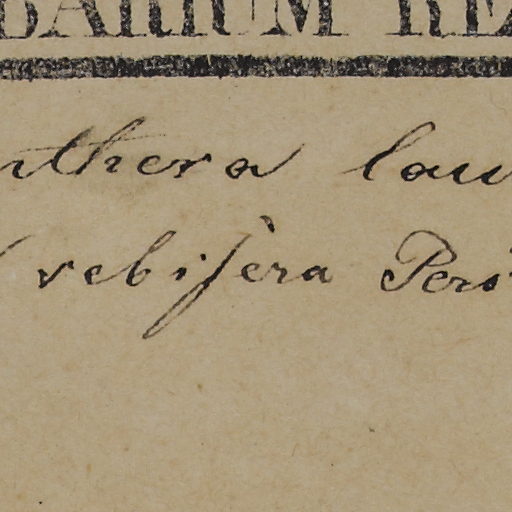 BARIUM RE
nthera lau
rebifera Pers